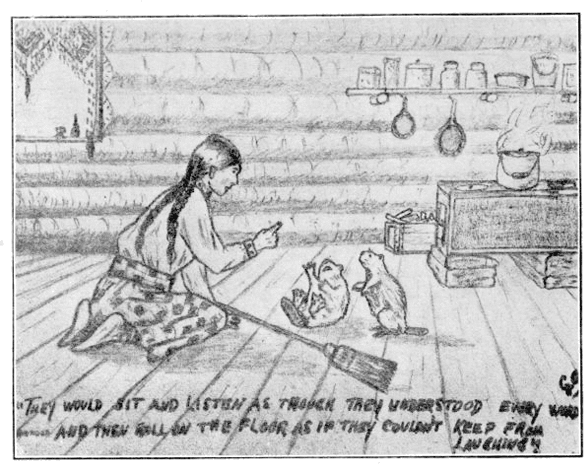 "THEY WOULD SIT AND LISTEN AS THOUGH THEY UNDERSTOOD EVERY WORD
AND THEN ROLL ON THE FLOOR AS IF THEY COULDN'T KEEP FROM
LAUGHING"